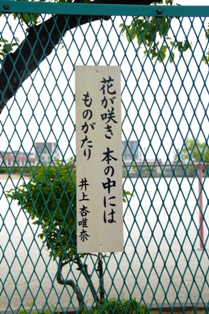 花が咲き 本の中には
ものがたり 井上杏唯奈